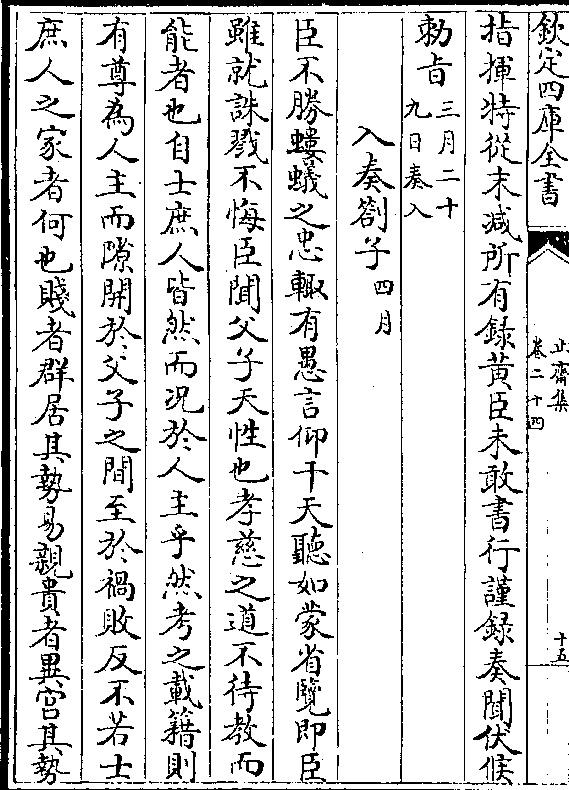 欽定四庫全書
止齋集
卷二十四
十五
指揮特從末减所有錄黃臣未敢書行謹錄奏聞伏候
勅旨三月二十
九日奏入
入奏劄子四月
臣不勝螻蟻之忠輙有愚言仰干天聽如蒙省覽即臣
雖就誅戮不悔臣聞父子天性也孝慈之道不待教而
能者也自士庶人皆然而况於人主乎然考之載籍則
有尊為人主而隙開於父子之間至於禍敗反不若士
庶人之家者何也賤者群居其勢易親貴者異宮其勢